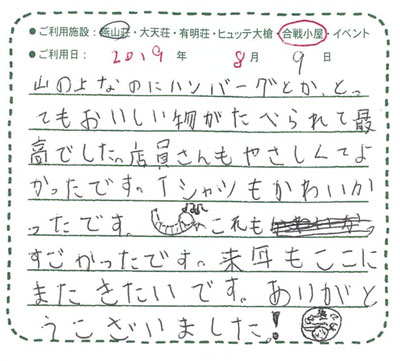 ●ご利用施設：燕山荘・大天荘・有明荘・ヒュッテ大槍・合戦小屋・イベント
●ご利用日： 2019 年 8 月 9 日
山の上なのにハンバーグとか、とっ
てもおいしい物がたべられて最
高でした。店員さんもやさしくてよ
かったです。Tシャツもかわいか
ったです。これも
すごかったです。来年もここに
またきたいです。ありがと
うございました!